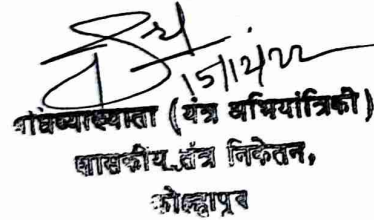 15/12/22
अधिव्याख्याता (यंत्र अभियांत्रिकी)
शासकीय तंत्र निकेतन,
कोल्हापूर